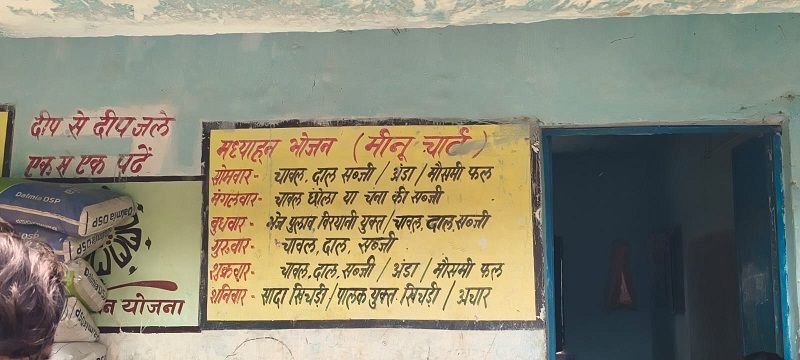 दीप से दीप जले
एक स एक पढें
मध्याहन भोजन (मीनू चार्ट)
सोमवार - चावल, दाल सब्जी / अंडा / मौसमी फल
मंगलवार - चावल छोला या चना की सब्जी
बुधवार - भेज पुलाव, विरयानी युक्त / चावल, दाल, सब्जी
गुरुवार - चावल, दाल, सब्जी
शुक्रवार - चावल, दाल, सब्जी / अंडा / मौसमी फल
शनिवार - सादा खिचड़ी / पालक युक्त खिचड़ी / अचार
Dalmia DSP
योजना